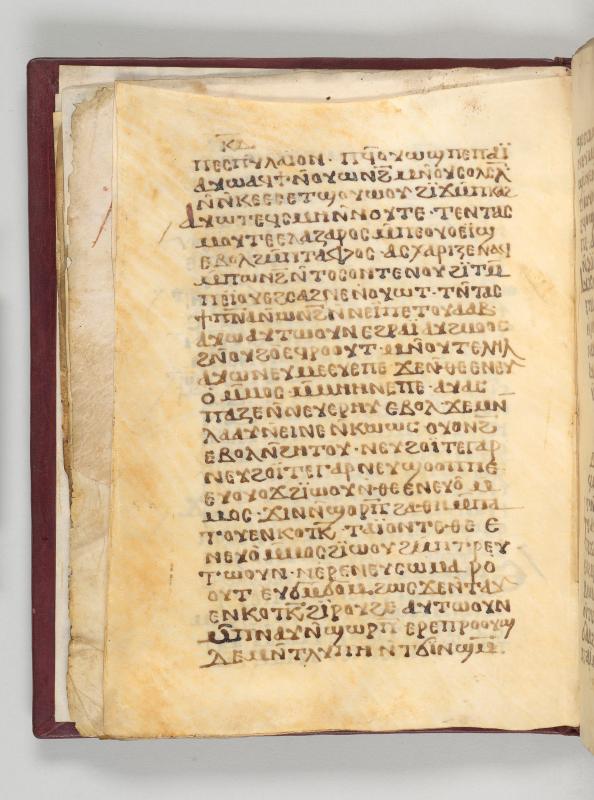 ⲕ̅ⲇ̅
ⲡⲉⲥⲡⲩⲗⲁⲓⲟⲛ · ⲡϥ̄ⲟⲩⲱϣ ⲡⲉ ⲡⲁⲓ̈
ⲁⲩⲱ ⲁϥϯ ⲛ̄ⲟⲩⲱⲛϩ̄ ⲙⲛ̄ⲟⲩⲥⲟⲗⲥⲗ̄
ⲛ̄ⲛ̄ⲕⲉⲉⲥ ⲉⲧϣⲟⲩⲱⲟⲩ ϩⲓϫⲙ̄ⲡⲕⲁϩ
ⲁⲩⲱ ⲧⲉϥⲥⲙⲏ ⲛ̄ⲛⲟⲩⲧⲉ · ⲧⲉⲛⲧⲁⲥ
ⲙⲟⲩⲧⲉ ⲉⲗⲁⲍⲁⲣⲟⲥ ⲙ̄ⲡⲉⲟⲩⲟⲉⲓϣ
ⲉⲃⲟⲗϩⲙ̄ⲡⲧⲁⲫⲟⲥ · ⲁⲥⲭⲁⲣⲓⲍⲉ ⲛⲁϥ
ⲙ̄ⲡⲱⲛϩ̄ ⲛ̄ⲧⲟⲥ ⲟⲛ ⲧⲉⲛⲟⲩ ϩⲓⲧⲙ̄
ⲡⲉⲓ̈ⲟⲩⲉϩⲥⲁϩⲛⲉ ⲛ̄ⲟⲩⲱⲧ · ⲧⲛ̄ⲧⲁⲥ
ϯⲡⲛ̄ⲁ̄ ⲛ̄ⲱⲛϩ̄ ⲛ̄ⲛⲉⲓⲡⲉⲧⲟⲩⲁⲁⲃ
ⲁⲩⲱ ⲁⲩⲧⲱⲟⲩⲛ ⲉϩⲣⲁⲓ̈ ⲁⲩϩⲙⲟⲟⲥ
ϩⲛ̄ⲟⲩϩⲟ ⲉϥⲣⲟⲟⲩⲧ · ⲙⲛ̄ⲟⲩⲧⲉⲗⲏⲗ
ⲁⲩⲱ ⲛⲉⲩⲙⲉⲉⲩⲉ ⲡⲉ ϫⲉⲛ·ⲑⲉ ⲉⲛⲉⲩ
ⲟ̄ ⲙ̄ⲙⲟⲥ · ⲙ̄ⲙⲏⲛⲉ ⲡⲉ · ⲁⲩⲁⲥ
ⲡⲁⲍⲉ ⲛ̄ⲛⲉⲩⲉⲣⲏⲩ ⲉⲃⲟⲗ ϫⲉⲙⲛ̄
ⲗⲁⲁⲩ ⲛ̄ⲉⲓⲛⲉ ⲛ̄ⲕⲱⲱⲥ ⲟⲩⲟⲛϩ̄
ⲉⲃⲟⲗ ⲛ̄ϩⲏⲧⲟⲩ · ⲛⲉⲩϩⲟⲓ̈ⲧⲉ ⲅⲁⲣ
ⲛⲉⲩϩⲟⲓ̈ⲧⲉ ⲅⲁⲣ ⲛⲉⲩϣⲟⲟⲡ ⲡⲉ
ⲉⲩⲟⲩⲟϫ ϩⲓ̈ⲱⲟⲩⲛ·ⲑⲉ ⲉⲛⲉⲩⲟ̄ ⲙ̄
ⲙⲟⲥ · ϫⲓⲛⲛ̄ϣⲟⲣⲡ̄ ϩⲁ·ⲑⲏ ⲙ̄ⲡⲁ
ⲧⲟⲩⲉⲛⲕⲟⲧⲕ̄ · ⲧⲁⲓ̈ ⲟⲛ ⲧⲉ ·ⲑⲉ ⲉ
ⲛⲉⲩⲟ̄ ⲙ̄ⲙⲟⲥ ϩⲓ̈ⲱⲟⲩ ϩⲙ̄ⲡⲧ·ⲣⲉⲩ
ⲧ·ⲱⲟⲩⲛ · ⲛⲉⲣⲉⲛⲉⲩⲥⲱⲙⲁ ⲣⲟ
ⲟⲩⲧ ⲉⲩϭⲙϭⲟⲙ ϩⲱⲥ ϫⲉⲛⲧⲁⲩ
ⲉⲛⲕⲟⲧⲕ̄ ϩⲓⲣⲟⲩϩⲉ ⲁⲩⲧⲱⲟⲩⲛ
ⲙ̄ⲡⲛⲁⲩ ⲛ̄ϣⲱⲣⲡ̄ ⲉⲣⲉⲡⲣⲟⲟⲩϣ
ⲇⲉ ⲙⲛ̄ⲧⲗⲩⲡⲏ ⲛⲧϭⲓⲛϣⲙ̄